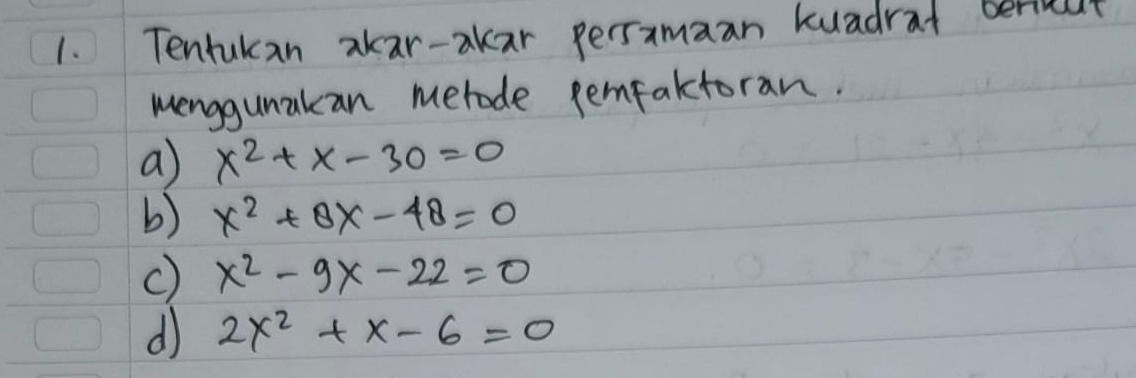 1. Tentukan akar-akar persamaan kuadrat berikut
menggunakan metode pemfaktoran.
a) x² + x - 30 = 0
b) x² + 8x - 48 = 0
c) x² - 9x - 22 = 0
d) 2x² + x - 6 = 0